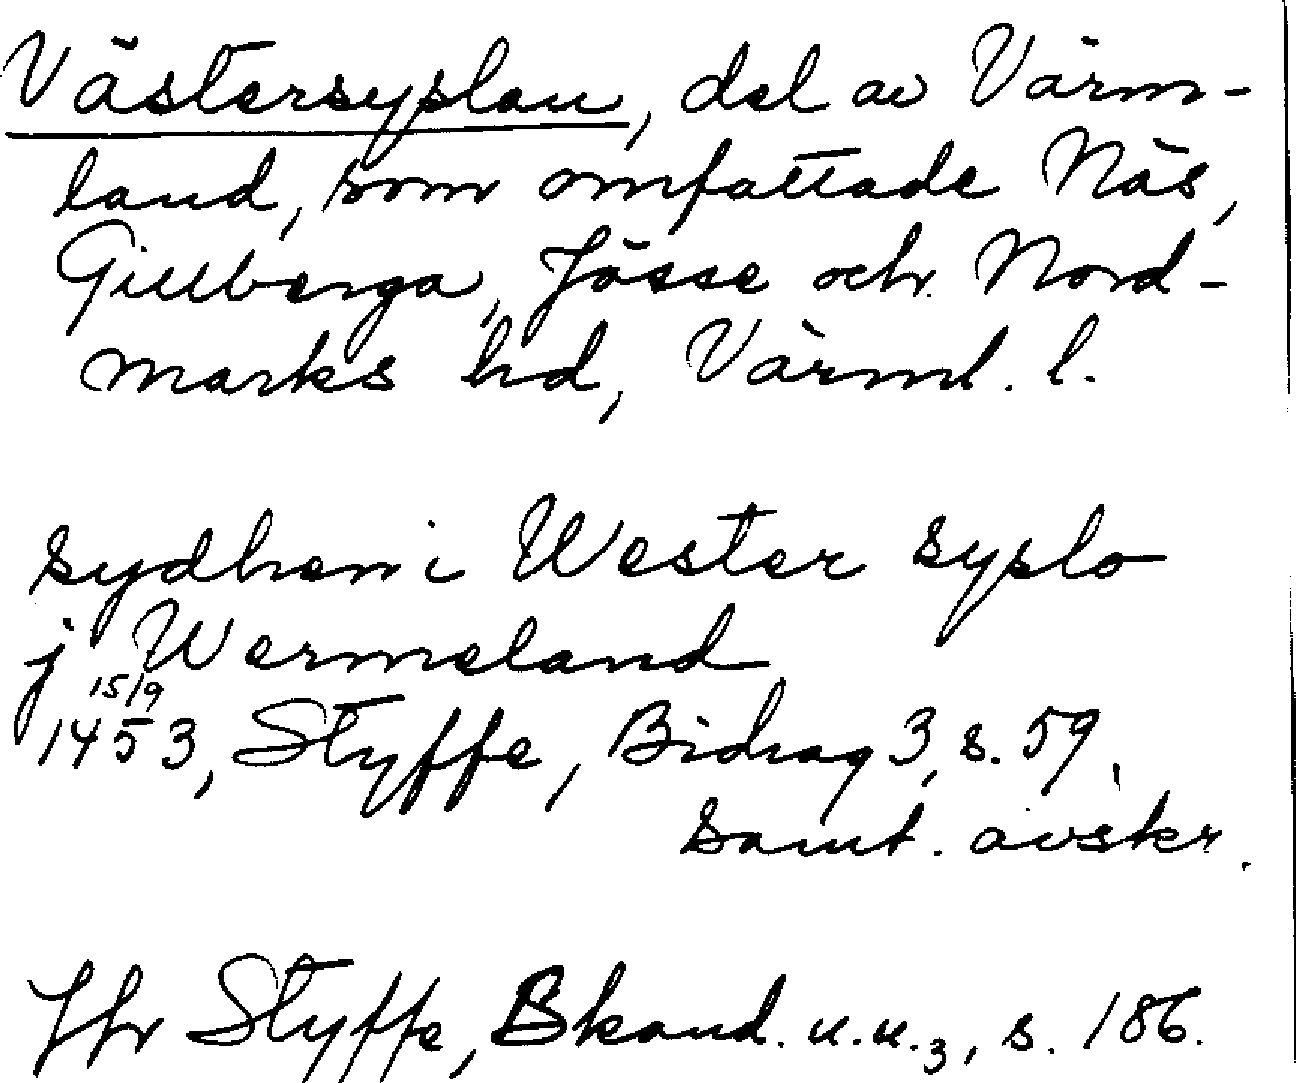 Västersyslan, del av Värm-
land, som omfattade Näs,
Gillberga, Jösse och Nord-
marks hd, Värml. l.
sydhen i Wester syslo
j Wermeland
15/9
1453, Styffe, Bidrag 3, s. 59,
samt. avskr.
Jfr Styffe, Skand. u.u.3, s. 186.